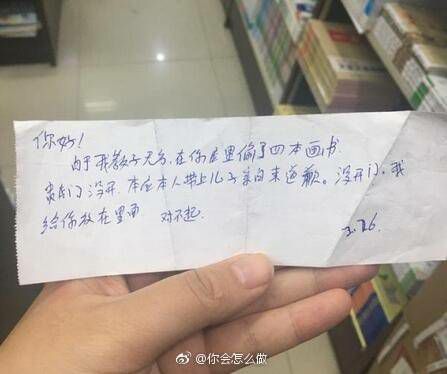 你好!
由于我教子无方,在你店里偷了四本画书
门没开.本应本人带上儿子亲自来道歉。没开门,我
给你放在里面 对不起
3.26.
@你会怎么做